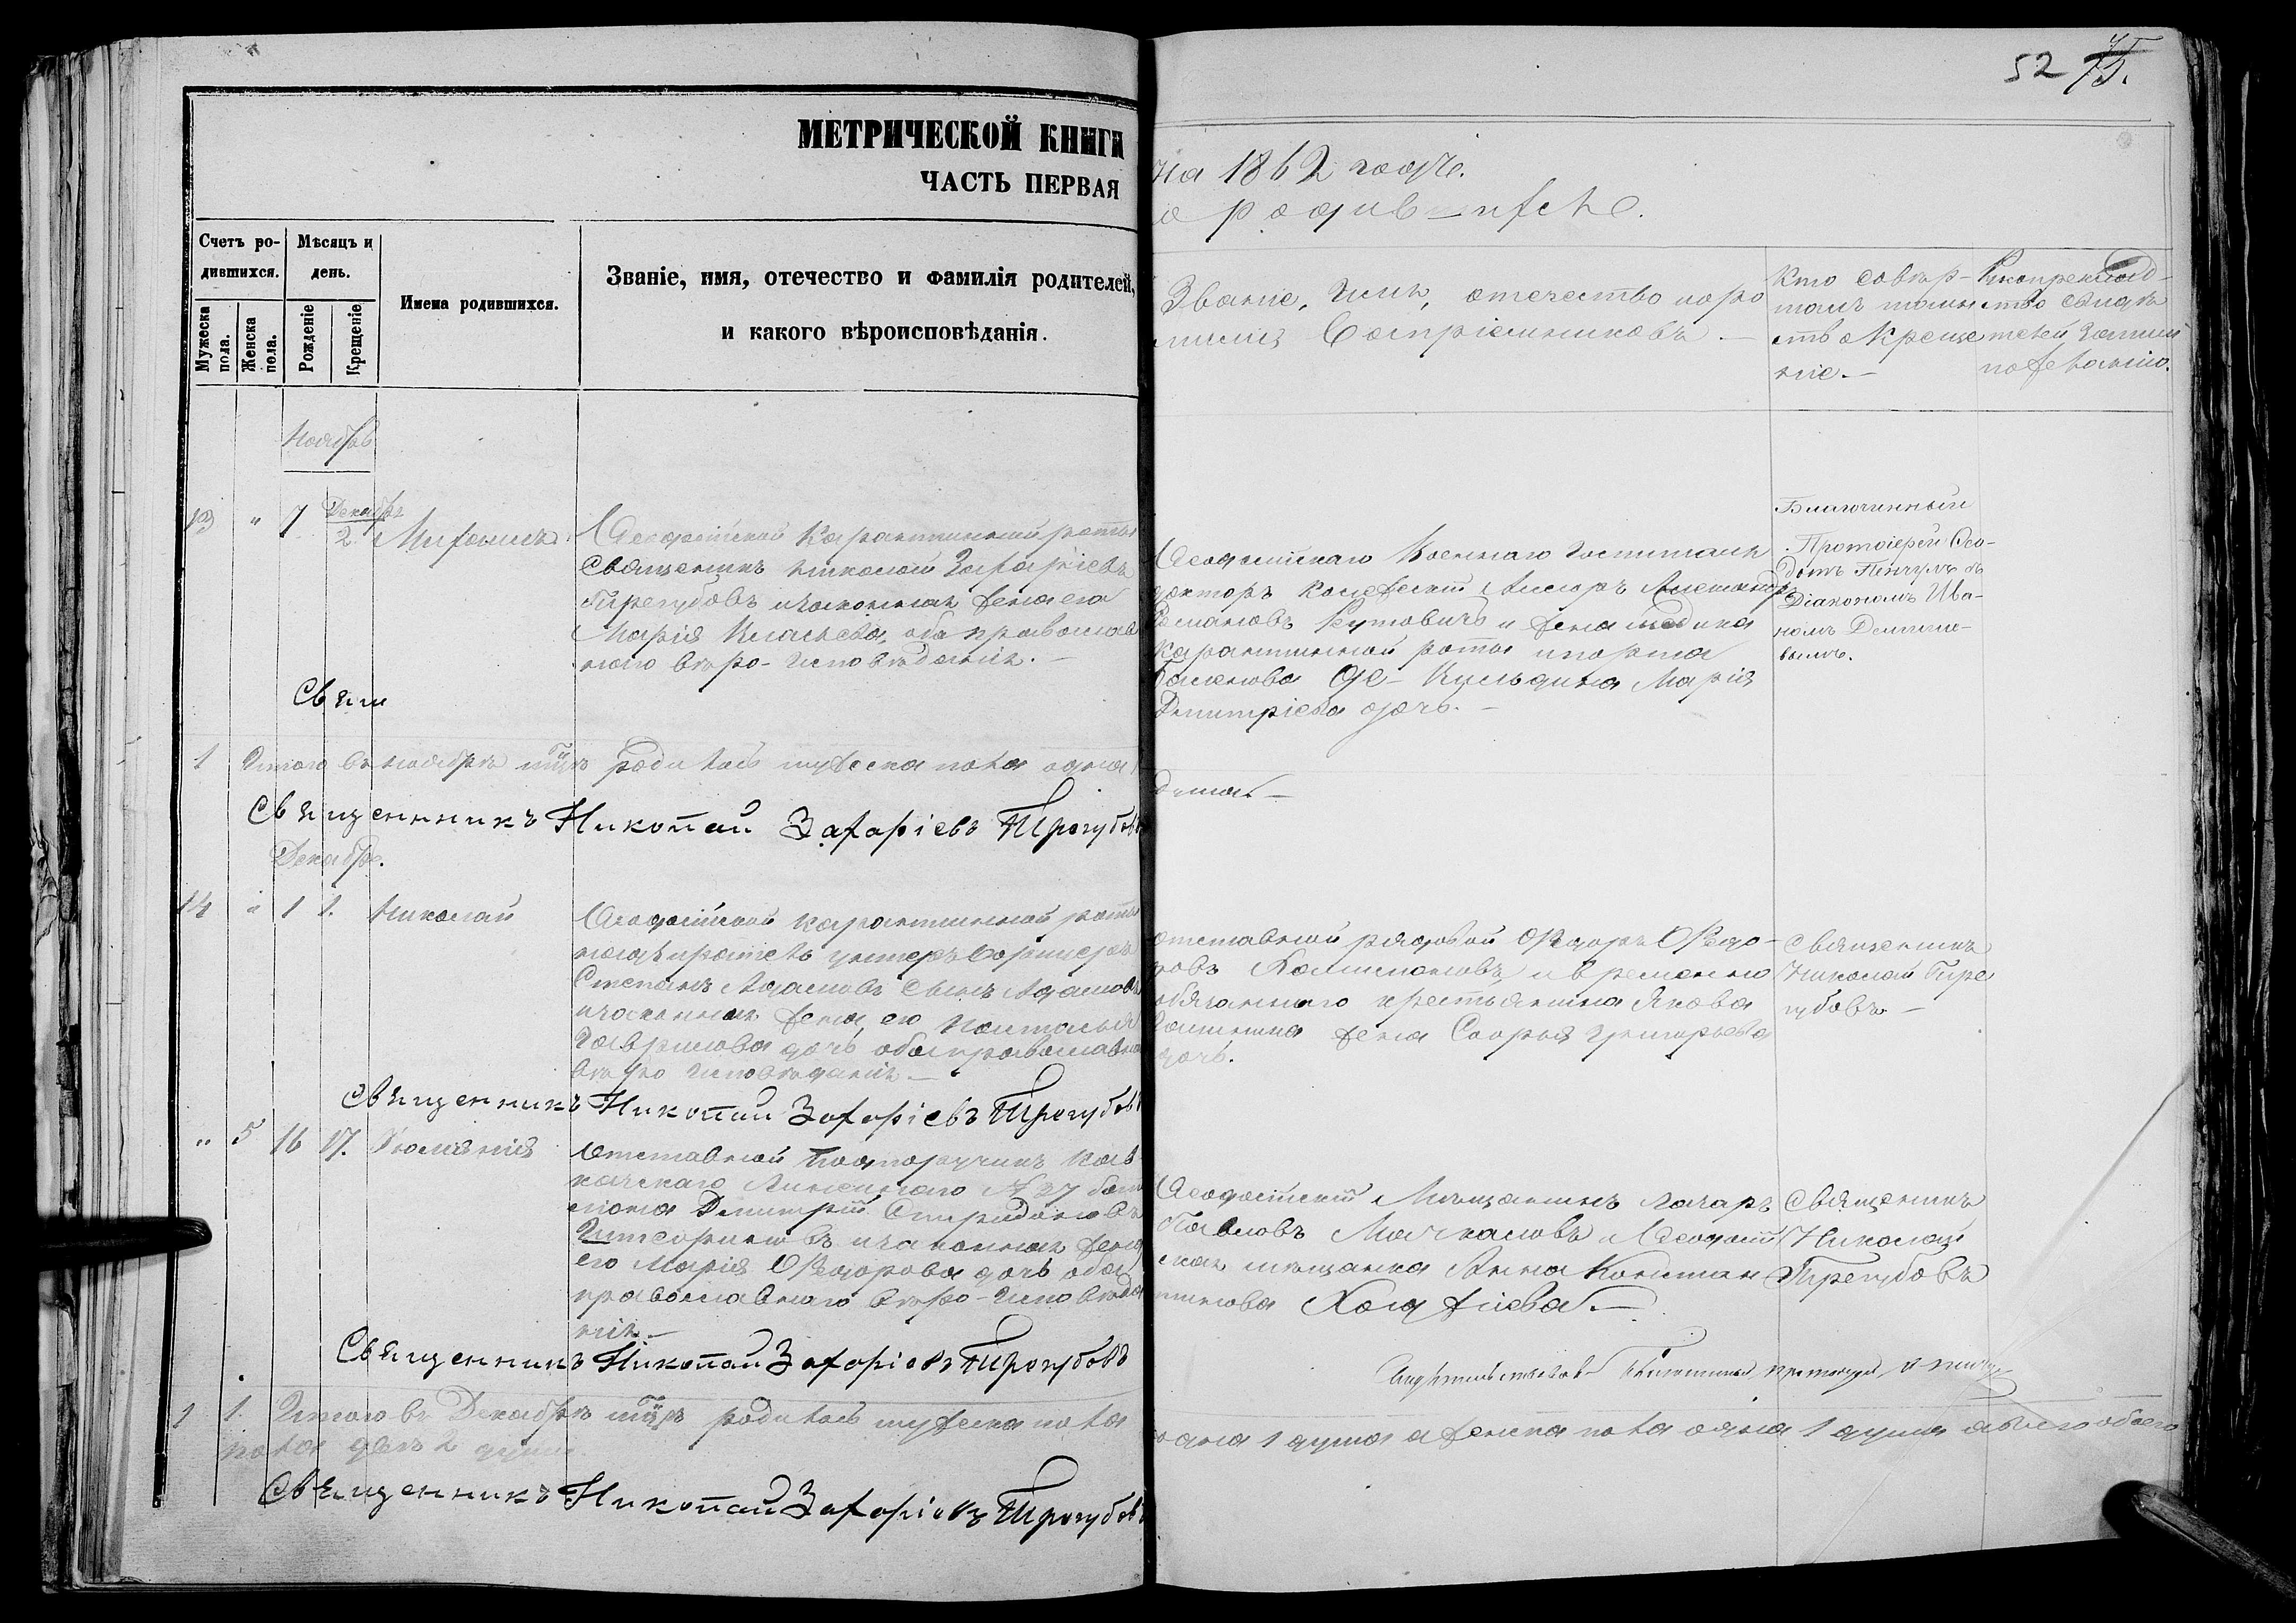 52 75.
МЕТРИЧЕСКОЙ КНИГИ
ЧАСТЬ ПЕРВАЯ
на 1862 годъ.
о родившихся.
Счетъ ро-
дившихся.
Мужеска
пола.
Женска
пола.
Мѣсяцъ и
день.
Рожденіе
Крещеніе
Имена родившихся.
Званіе, имя, отечество и фамилія родителей,
и какого вѣроисповѣданія.
Званіе, имя, отечество и фа
милія Воспріемниковъ.—
Кто совер-
шалъ таин
ство Креще
ніе.—
Рукоприклад-
ство свидѣ
телей записи
по желанію.
Ноябрь
13 " 7 Декабрь
2 Митрофанъ
Ѳеодосійской Карантинной роты
Священникъ Николай Захаріевъ
Трегубовъ и законная жена его
Марія Ильинева, оба православ
наго вѣро-исповѣданія.—
Ѳеодосійскаго Военнаго Госпиталя
докторъ Колежскій Ассесоръ Александръ
Романовъ Кутовичъ и жена медика
Карантинной роты
Де- Марія
Димитріева дочь.—
Благочинный
Протоіерей Ѳео-
дотъ съ
Діакономъ Ива-
номъ
Свящ
1 Итого въ ноябрѣ мцѣ родилось мужеска пола одна 1
душа.—
Священникъ Николай Захаріевъ Трегубовъ
Декабрь.
14 " 1 1. Николай
Ѳеодосійской карантинной роты
надзиратель унтеръ Офицеръ
Степанъ Адамовъ сынъ Адамовъ
и законная жена его Наталья
Гаврилова дочь, оба православнаго
вѣро исповѣданія.—
отставной рядовой Ѳедоръ Ѳедо-
ровъ и временно
обязаннаго крестьянина Якова
жена Софья Григорьева
дочь.
Священникъ
Николай Тре
губовъ.—
Священникъ Николай Захаріевъ Трегубовъ
" 5 16 17. Іюліанія
Отставной Подпоручикъ Кав-
казскаго Линейнаго № 27 бата
ліона Димитрій Спиридоновъ
и законная жена
его Марія Ѳедорова дочь оба
православнаго вѣро-исповѣда
нія.—
Ѳеодосійскій Мѣщанинъ Лазарь
Павловъ и Ѳеодосій
ская мѣщанка Анна Констан
тинова Хаджіева.—
Священникъ
Николай
Трегубовъ
Священникъ Николай Захаріевъ Трегубовъ
Свидѣтельствовалъ Благочинный протоіерей
1 1. Итого въ Декабрѣ мцѣ родилось мужеска пола
одна 1 душа а женска пола одна 1 душа а всего обоего
пола двѣ 2 души
Священникъ Николай Захаріевъ Трегубовъ